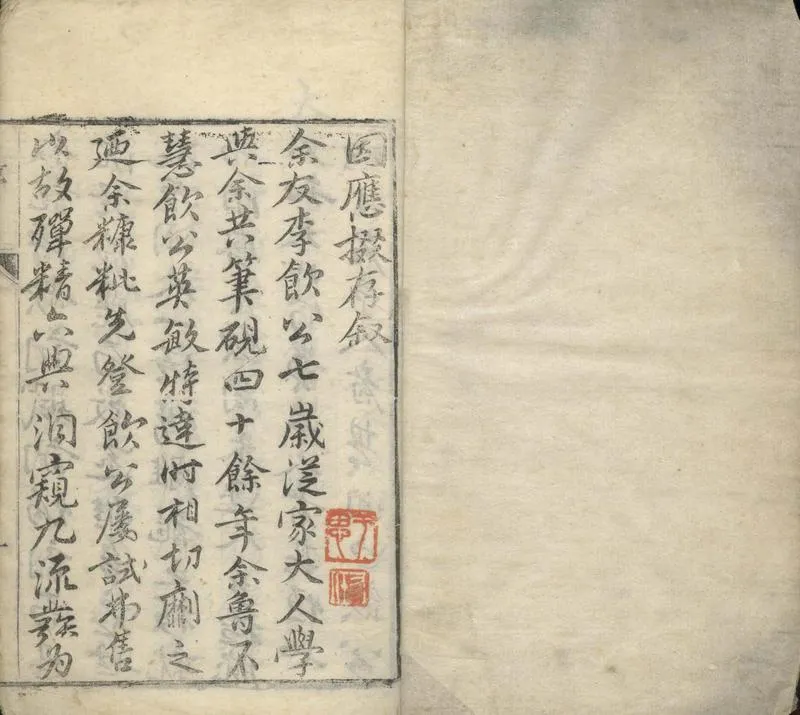 因應掇存叙
余友李飲公七歲從家大人學
與余共筆硯四十餘年余魯不
慧飲公英敏特達時相切劘之
廼余糠粃先登飲公屡試弗售
以故殫精六典洞窺九流發为